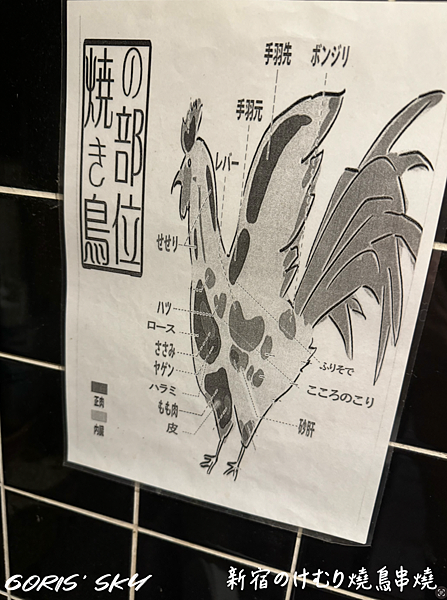 焼き鳥
の部位
手羽先
ボンジリ
手羽元
レバー
せせり
ハツ
ロース
ささみ
ヤゲン
ハラミ
もも肉
皮
ふりそで
こころのこり
砂肝
正肉
内臓
BORIS' SKY
新宿のけむり燒鳥串燒